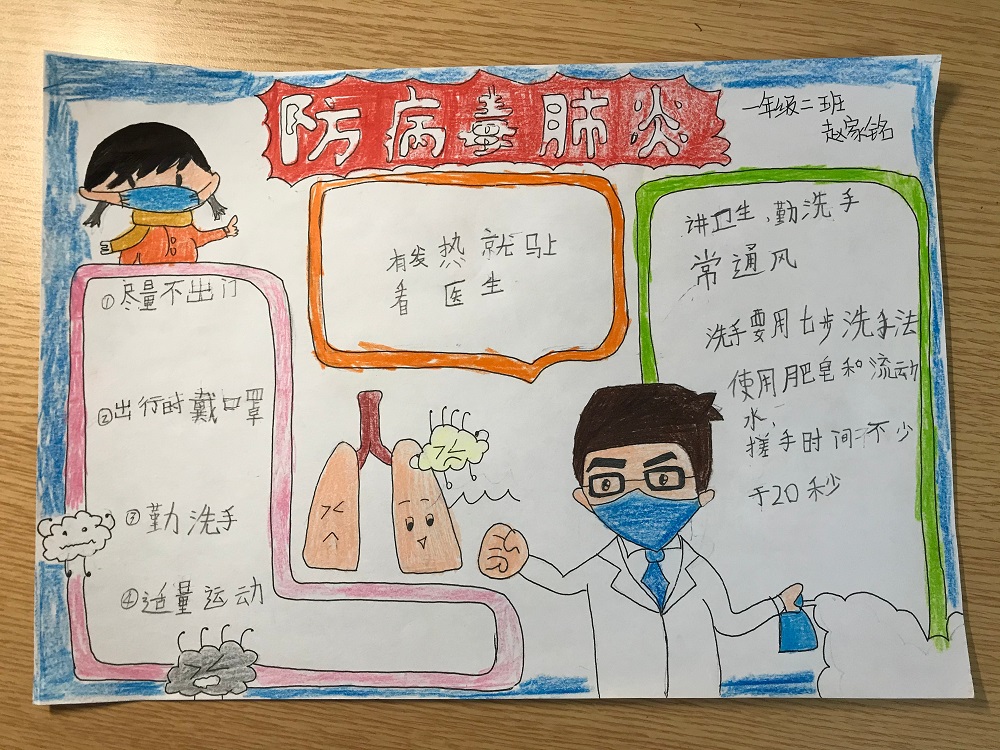 防病毒肺炎
一年级二班
赵家铭
有发热就马上
看医生
①尽量不出门
②出行时戴口罩
③勤洗手
④适量运动
讲卫生、勤洗手
常通风
洗手要用七步洗手法
使用肥皂和流动
水，
搓手时间不少
于20秒